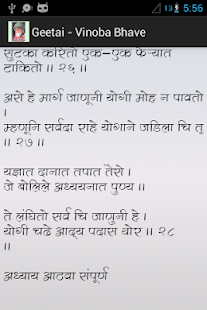 5:56
Geetai - Vinoba Bhave
सुटका करितो एक-एक फेऱ्यात
टाकितो ॥ २६ ॥
असे हे मार्ग जाणूनी योगी मोह न पावतो
।
म्हणूनि सर्वदा राहे योगाने जडिला चि तू
॥ २७ ॥
यज्ञात दानात तपात तैसे ।
जे बोलिले अध्ययनात पुण्य ॥
ते लंघितो सर्व चि जाणुनी हे ।
योगी चढे आद्य पदास थोर ॥ २८
॥
अध्याय आठवा संपूर्ण